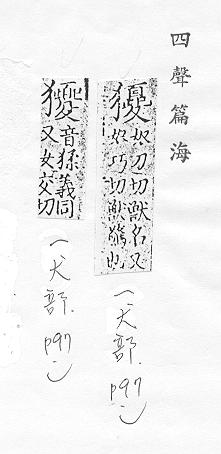 四聲篇海
獶
奴刀切獸名又
奴巧切獸驚也
(犬部. p97)
獿
音猱義同
又女交切
(犬部. p97)